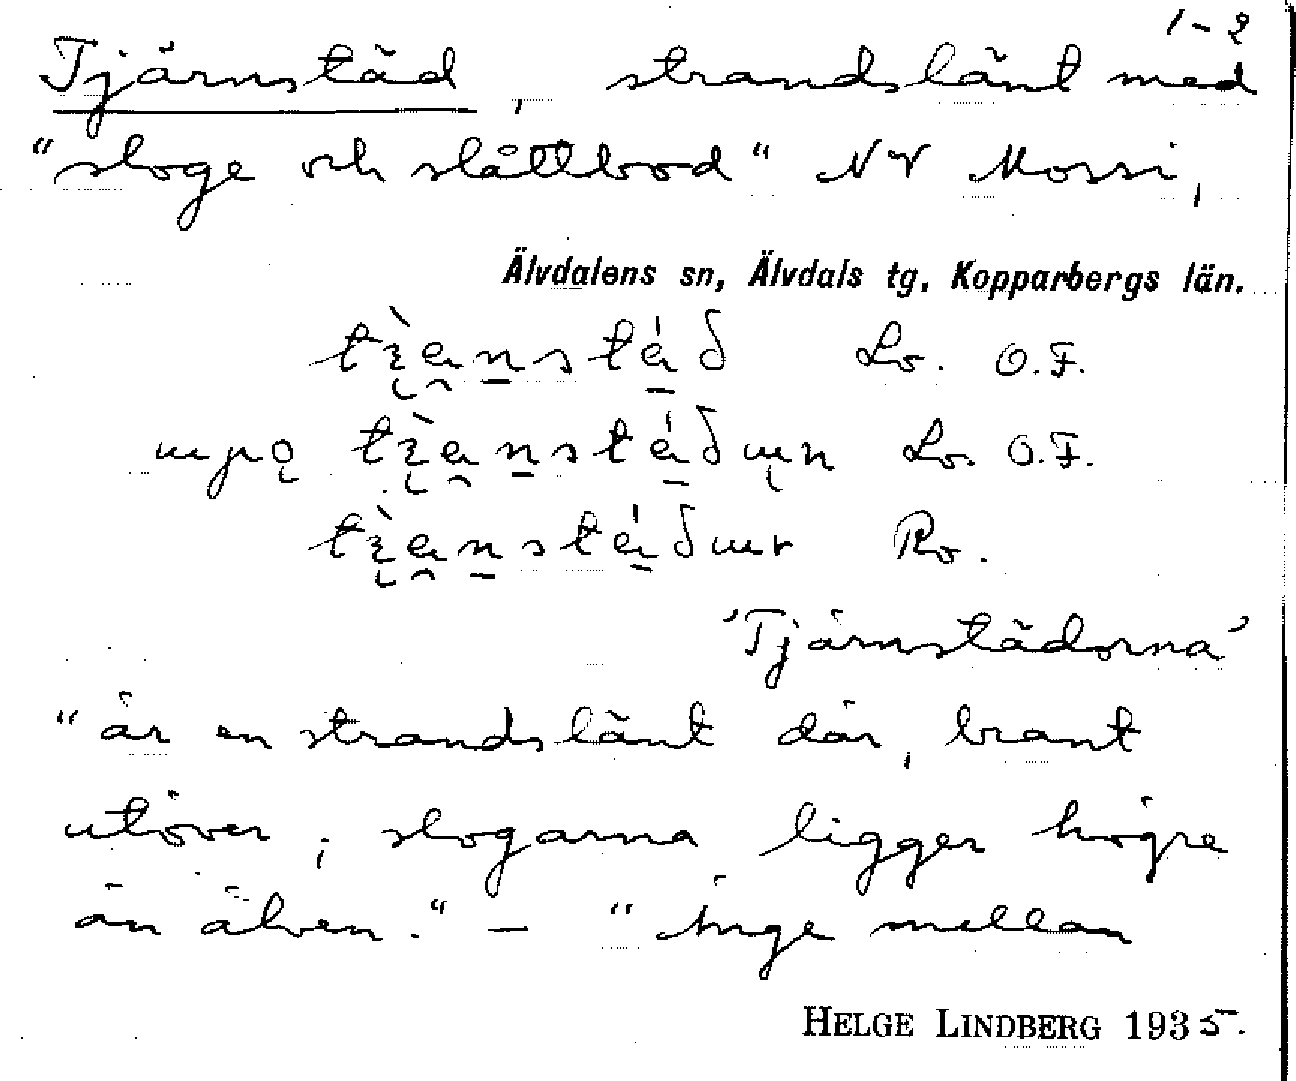 1-2
Tjärnstäd, strandslänt med
"sloge och slåttbod" NV Mossi,
Älvdalens sn, Älvdals tg, Kopparbergs län.
Lo. O.F.
Lo. O.F.
Ro.
'Tjärnstäderna'
"är en strandslänt där, brant
utöver; slogarna ligger högre
än älven." – " Inge mellan
HELGE LINDBERG 1935.